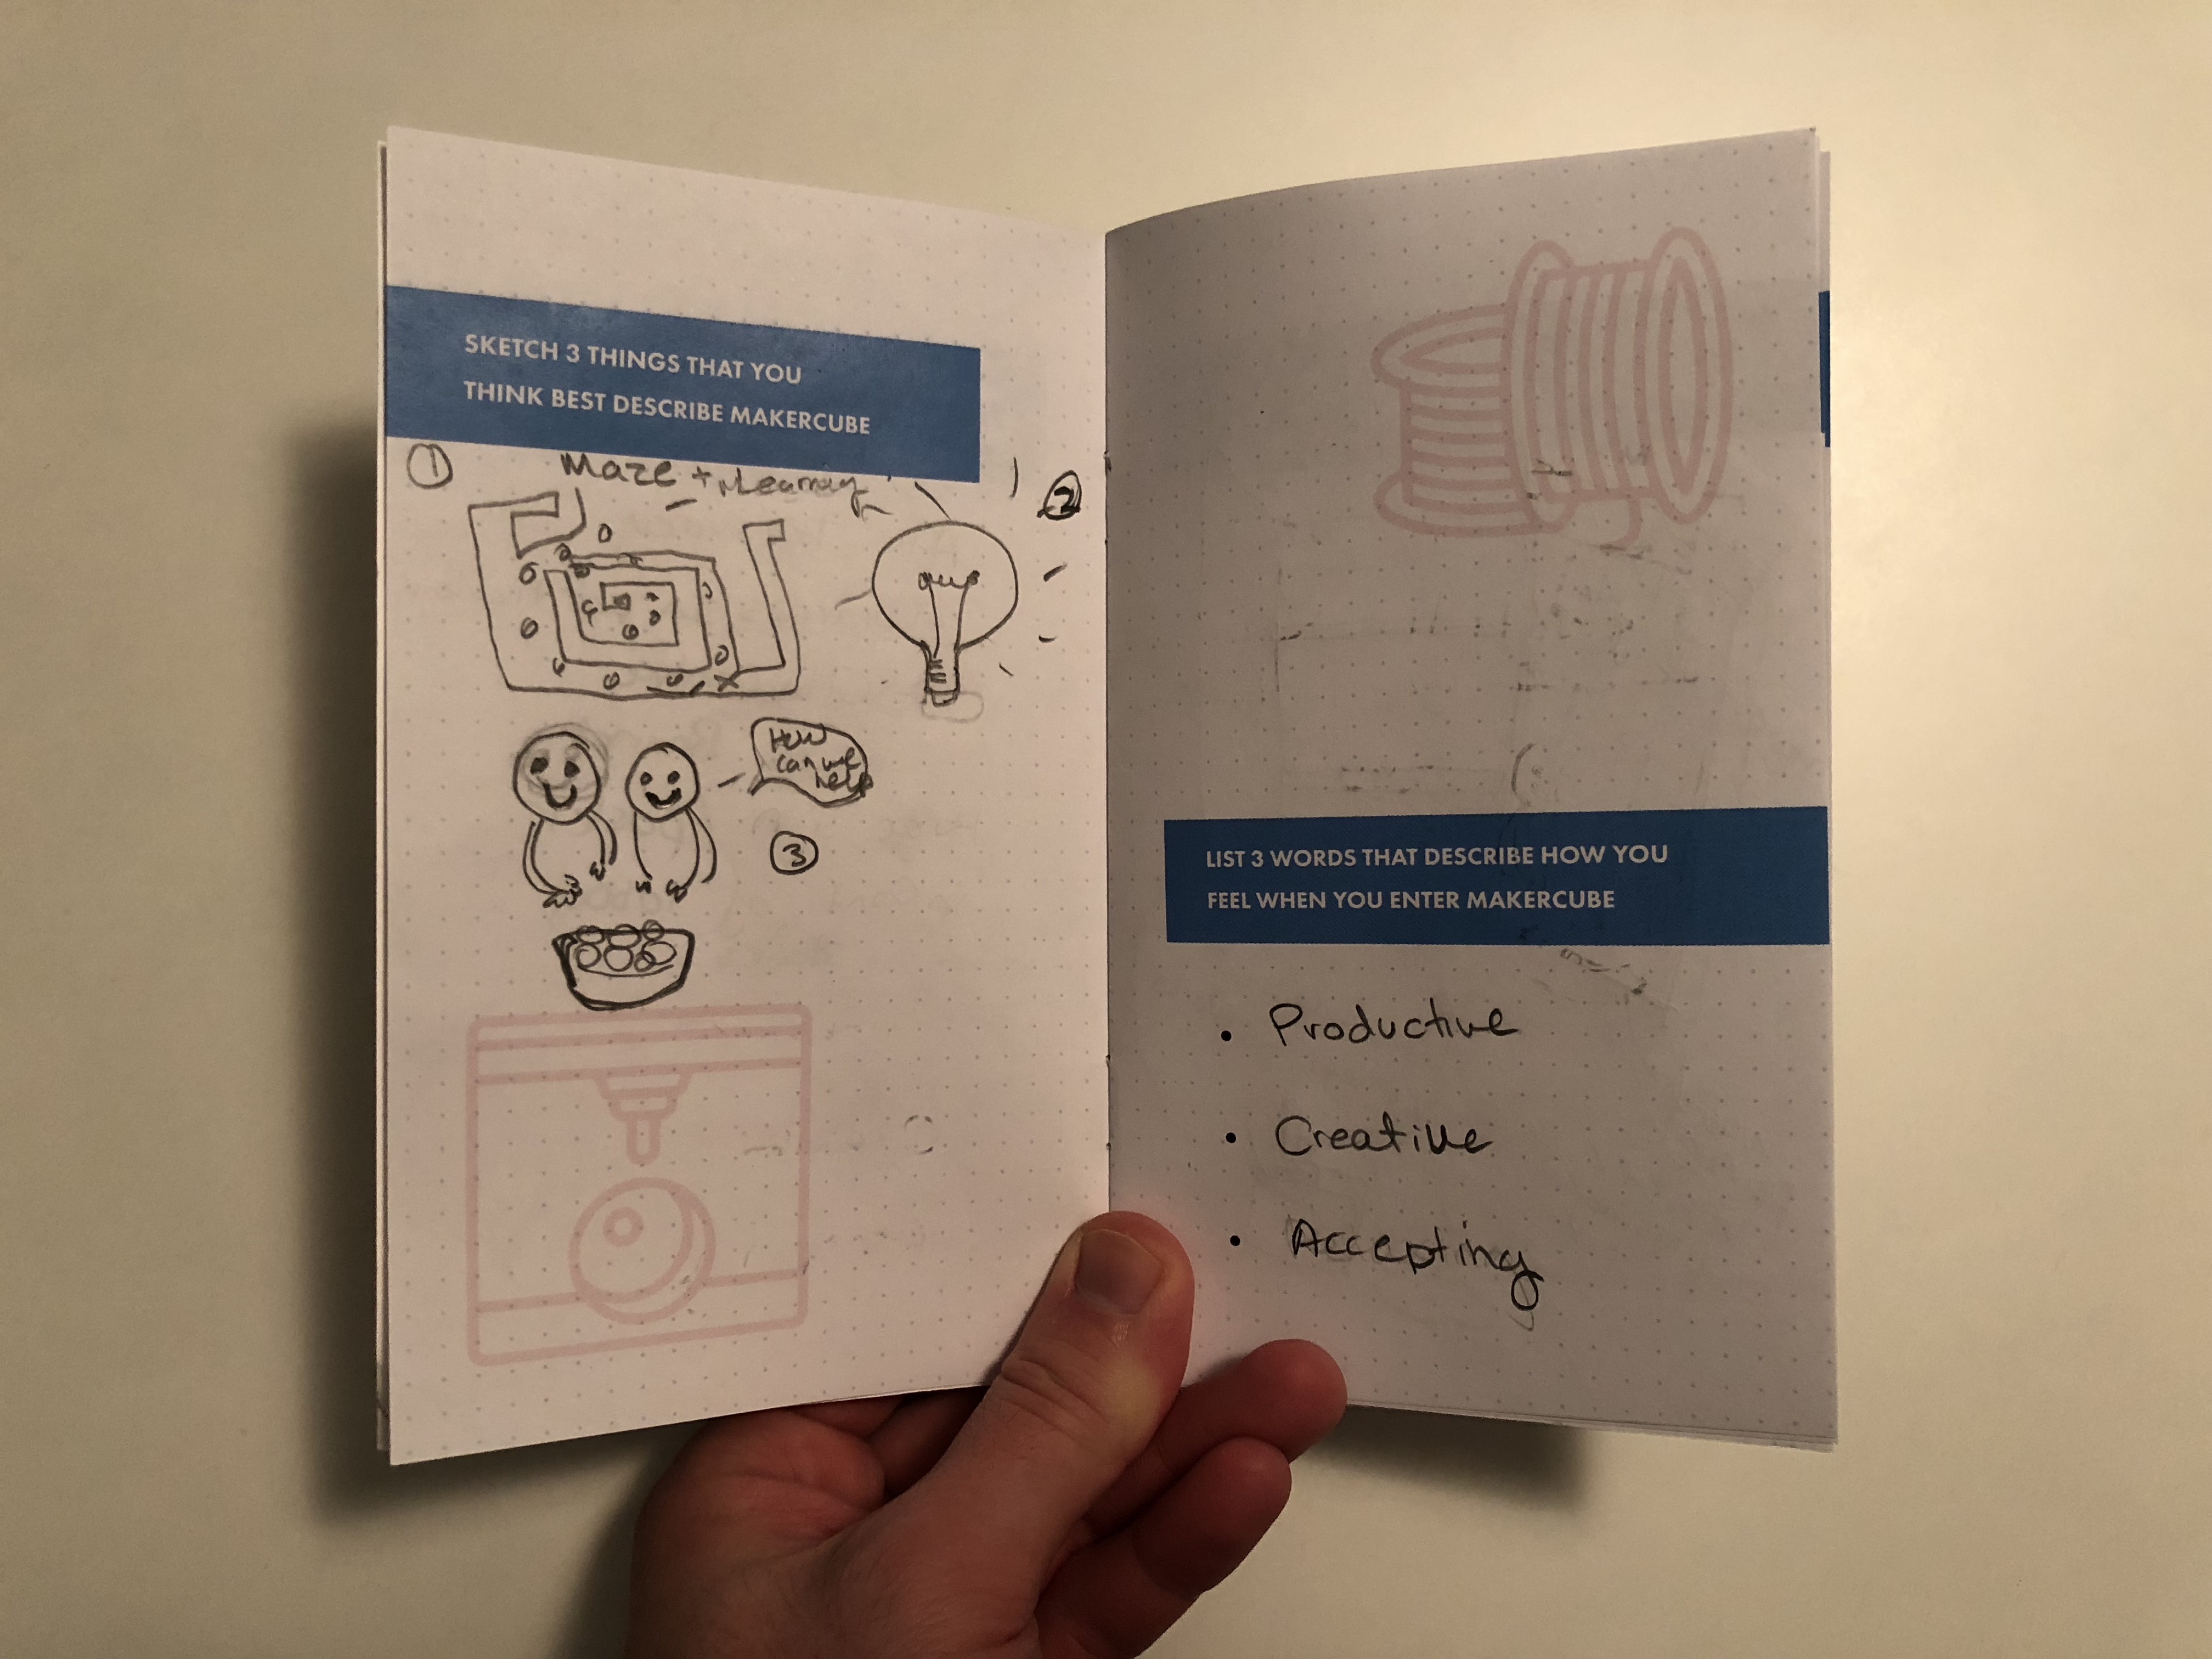 SKETCH 3 THINGS THAT YOU
THINK BEST DESCRIBE MAKERCUBE
1
Maze + Learning
2
How
can we
help
3
LIST 3 WORDS THAT DESCRIBE HOW YOU
FEEL WHEN YOU ENTER MAKERCUBE
• Productive
• Creative
• Accepting